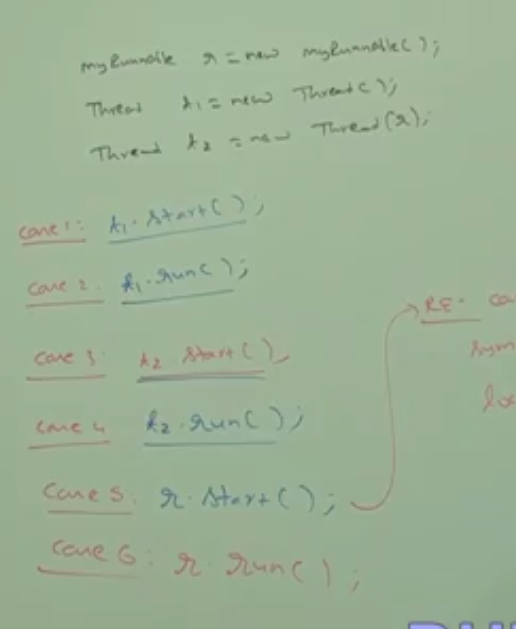 myRunnable r = new myRunnable();
Thread t1 = new Thread();
Thread t2 = new Thread(r);
Case 1: t1.start();
Case 2. t1.run();
Case 3 t2 start();
Case 4 t2.run();
Case 5. r.start();
Case 6: r.run();
RE.